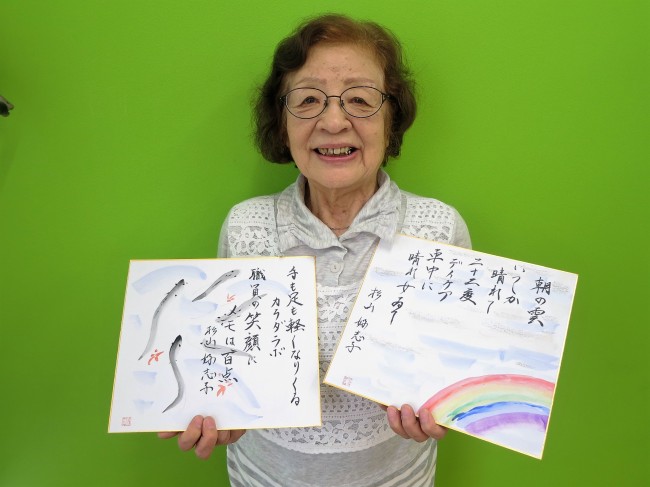 手も足も軽くなりくる
カラダラボ
職員の笑顔に
メモは百点
杉山
志子
朝の雲
いつしか
晴れし
二十三度
デイケアの
車中に
晴れ女
杉山
志子